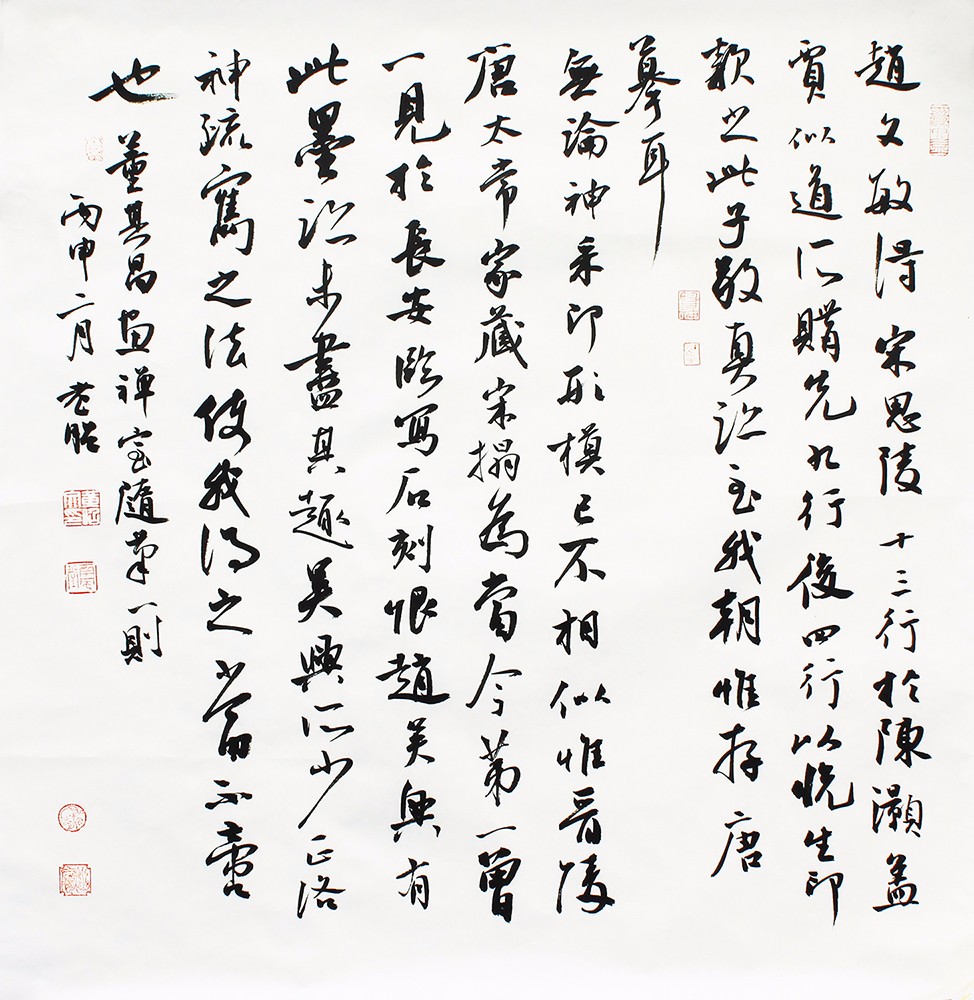 趙文敏得宋思陵十三行於陳灝蓋
賈似道所購先九行後四行以悅生印
款之此子敬真跡至我朝惟存唐
摹耳
無論神采即形模已不相似惟晉陵
唐太常家藏宋搨為當今第一曾
一見於長安臨寫石刻恨趙吳興有
此墨跡未盡其趣吳興所少正洛
神疏寯之法使我得之少當不啻
也
董其昌畫禅室隨筆一則
丙申二月老